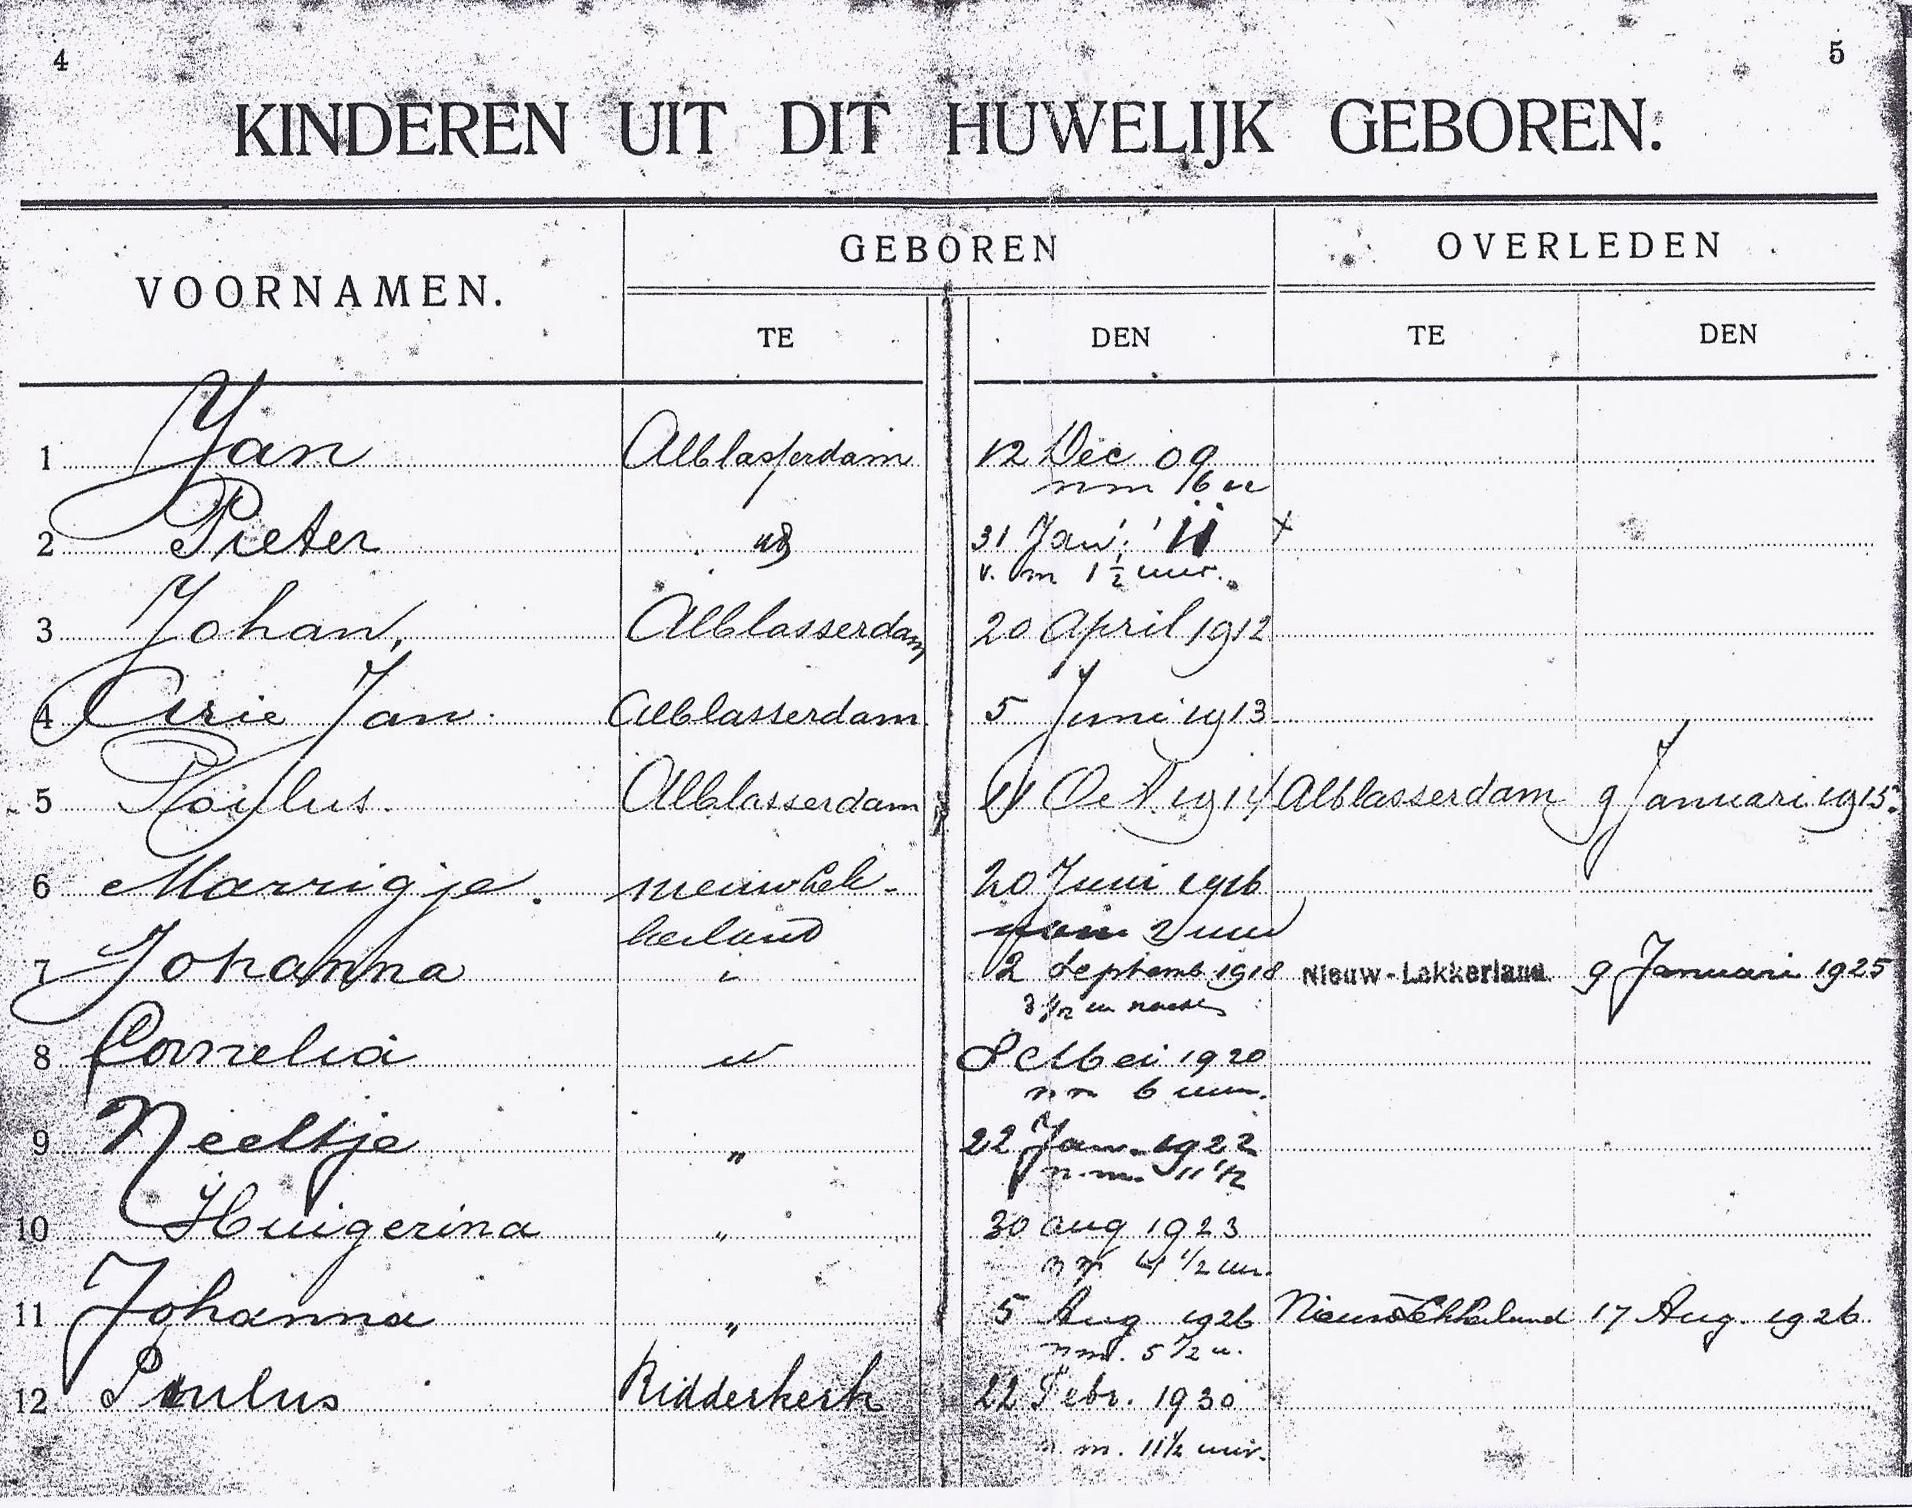 4 5
KINDEREN UIT DIT HUWELIJK GEBOREN.
VOORNAMEN. GEBOREN OVERLEDEN
TE DEN TE DEN
1 Jan Alblasserdam 12 Dec 09
nm 6 u
2 Pieter 31 Jan. '11
v. m 1 1/2 uur.
3 Johan, Alblasserdam 20 April 1912
4 Arie Jan Alblasserdam 5 Juni 1913
5 Paulus. Alblasserdam 11 Oct 1914 Alblasserdam 9 Januari 1915.
6 Marrigje. nieuwlek- 20 Juni 1916
kerland 2 uur
7 Johanna " 2 Septemb 1918 Nieuw-Lekkerland 9 Januari 1925
3 1/2 u
8 Cornelia " 8 Mei 1920
nm 6 uur.
9 Neeltje " 22 Jan. 1922
n.m. 11 1/2
10 Huigerina " 30 aug 1923
nm 4 1/2 uur.
11 Johanna " 5 Aug 1926 Nieuw Lekkerland 17 Aug. 1926
nm. 5 1/2 u.
12 Paulus Ridderkerk 22 Febr. 1930
n.m. 11 1/2 uur.